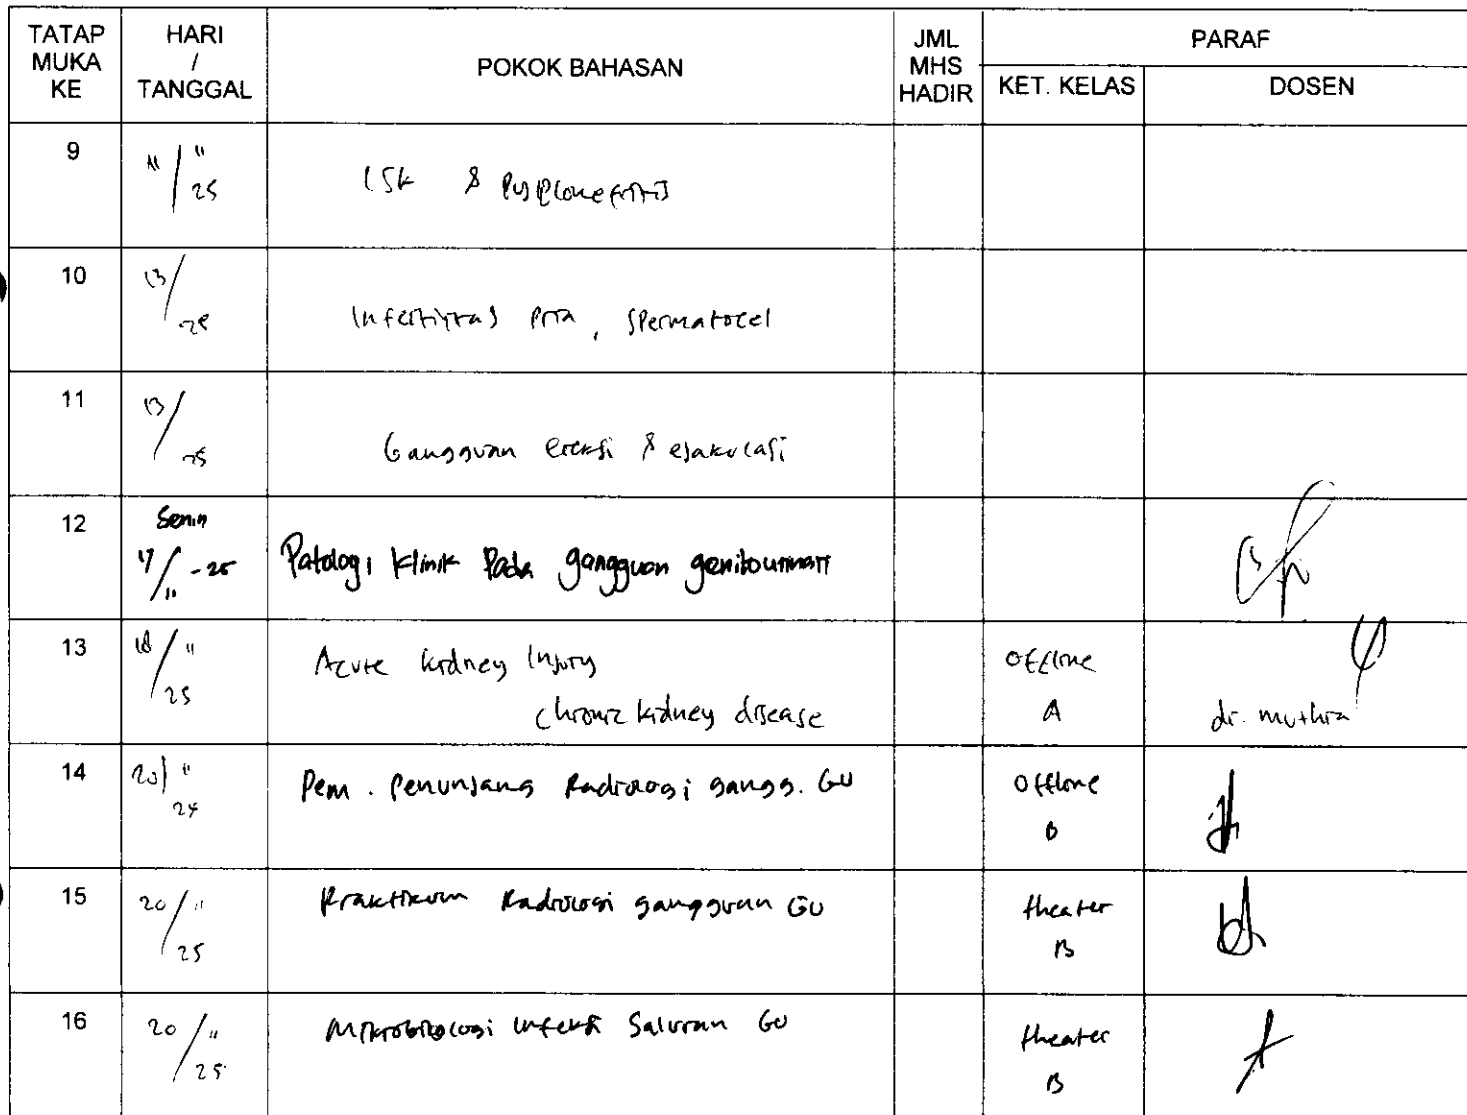 TATAP MUKA KE
HARI / TANGGAL
POKOK BAHASAN
JML MHS HADIR
PARAF
KET. KELAS
DOSEN
9
11/11 25
ISK & pyelonefritis
10
13/ 25
Infertilitas pria, spermatocel
11
13/ 25
Gangguan ereksi & ejakulasi
12
Senin
17/11 - 25
Patologi klinik pada gangguan genitourinari
13
18/11 25
Acute kidney Injury
chronic kidney disease
offline
A
dr. muthia
14
20/11
Pem. penunjang Radiologi gangg. GU
offline
B
15
20/11 25
Praktikum Radiologi gangguan GU
theater
B
16
20/11 25
Mikrobiologi infeksi Saluran GU
theater
B